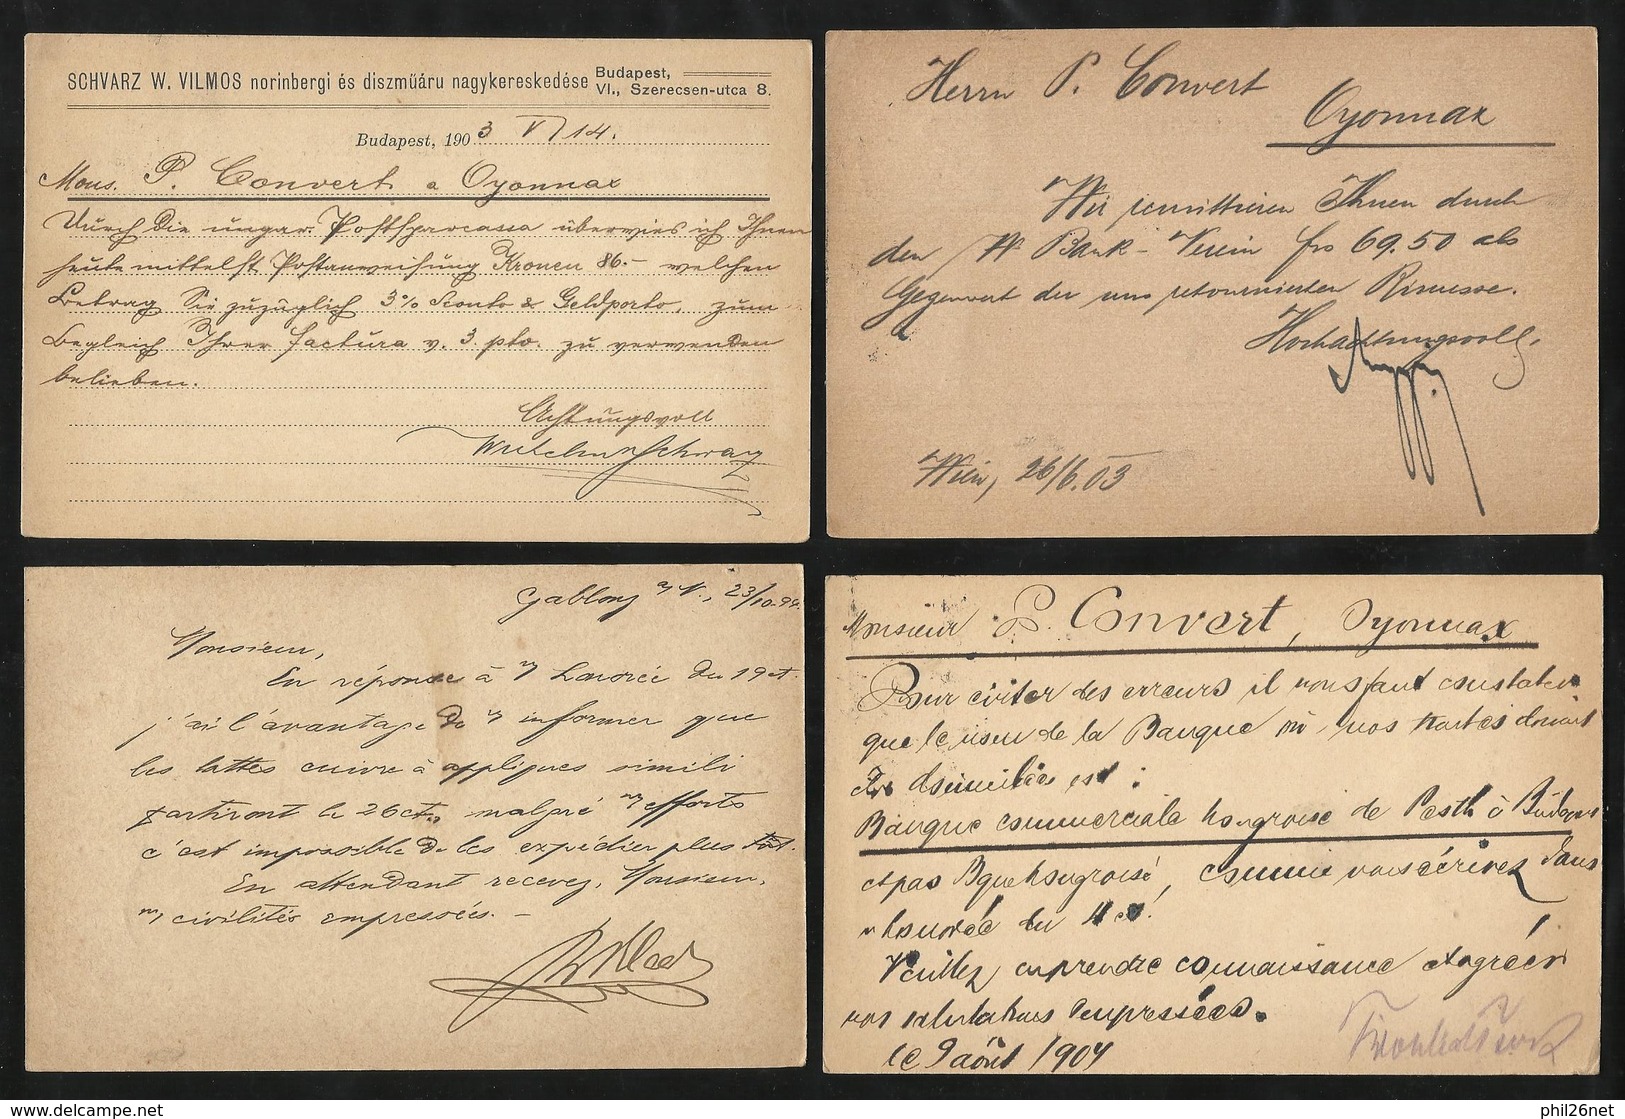 SCHVARZ W. VILMOS norinbergi és diszműáru nagykereskedése Budapest,
VI., Szerecsen-utca 8.
Budapest, 1903 V/14.
Mons. P. Convert a Oyonnax
Durch die ungar. Postsparcassa überwies ich Ihnen
heute mittelst Postanweisung Kronen 86.- welchen
Betrag Sie zuzüglich 3% Sconto & Geldporto, zum
Begleich Ihrer factura v. 3. pto. zu verwenden
belieben.
Achtungsvoll
Wilhelm Schwarz
Herrn P. Convert
Oyonnax
Wir remittieren Ihnen durch
den W Bank-Verein frs 69.50 als
Gegenwert der uns retournierten Rimesse.
Hochachtungsvoll
Wien, 26/6.03
Gablonz a/N., 23/10.94
Monsieur,
En réponse à v/ honorée du 19 ct.
j'ai l'avantage de v/ informer que
les lattes cuivre à appliques simili
partiront le 26 ct., malgré m/ efforts
c'est impossible de les expédier plus tôt.
En attendant recevez, Monsieur,
m/ civilités empressées. -
Monsieur P. Convert, Oyonnax
Pour éviter des erreurs il nous faut constater
que le nom de la Banque où nos traites doivent
domicilées est :
Banque commerciale hongroise de Pesth à Budapest
et pas Bque hongroise, comme vous écrivez dans
v/honorée du 4 ct.
Veuillez en prendre connaissance et agréer
nos salutations empressées.
le 9 août 1904
www.delcampe.net
phil26net